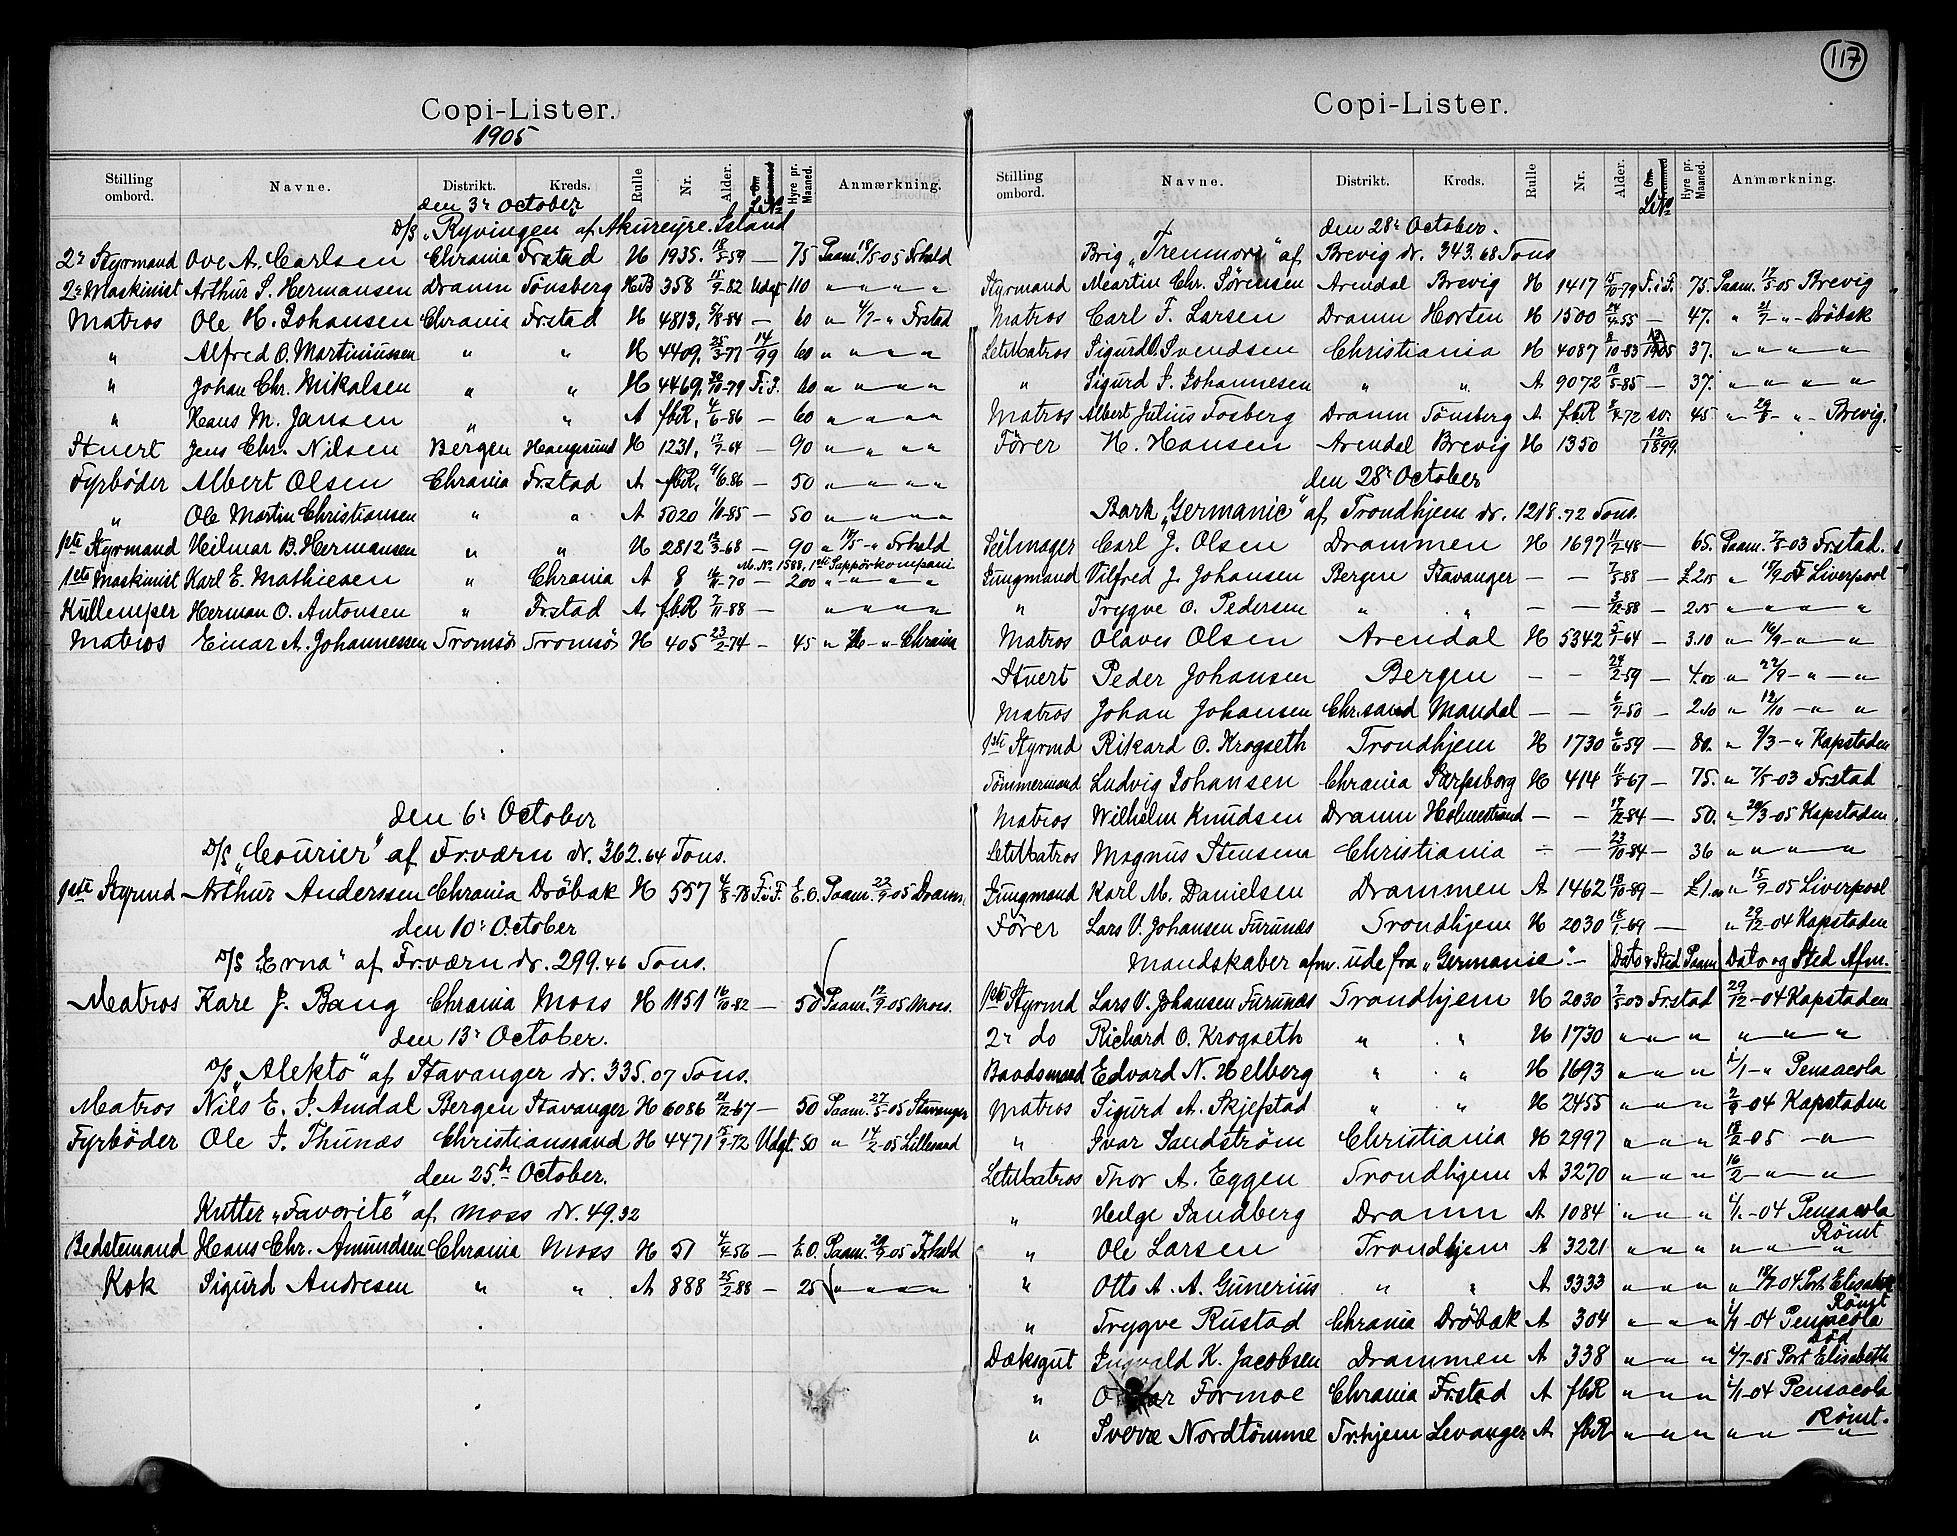 117
Copi-Lister.
1905
Stilling ombord. Navne. Distrikt. Kreds. Rulle Nr. Alder. Hyre pr. Maaned. Anmærkning.
den 3r October
D/S „Ryvingen af Akureyre. Island
2r Styrmand Ove A. Carlsen Chrania Frstad H 1935. 18/5-59 — 75 Paam. 18/5-05 Frhald
2r Maskinist Arthur S. Hermansen Dramn Tönsberg HB 358 15/9-82 Udgt 110 " " " "
Matros Ole H. Johansen Chrania Frstad H 4813, 5/8-84 — 60 " 4/7- " Frstad
" Alfred O. Martiniussen " " H 4409, 25/3-77 14/99 60 " " " "
" Johan Chr. Mikalsen " " H 4469, 30/10-79 F.i.F. 60 " " " "
" Hans M. Jansen " " A fbR, 4/6-86 — 60 " " " "
Stuert Jens Chr. Nilsen Bergen Haugesund H 1231, 17/7-64 — 90 " " " "
Fyrböder Albert Olsen Chrania Frstad A fbR, 9/6.86 — 50 " " " "
" Ole Martin Christiansen " " A 5020 1/11-85 — 50 " " " "
1ste Styrmand Hilmar B. Hermansen " " H 2812 12/3-68 — 90 " 19/5- " Frhald
M. No. 1588, 1ste Sappörkompani
1ste Maskinist Karl E. Mathiesen " Chrania A 8 16/8-70 — 200 " " " "
Kullemper Herman O. Antonsen " Frstad A fbR 7/11-88 — " " " "
Matros Einar A. Johannessen Tromsö Tromsö H 405 23/2-74 — 45 " - " Chrania
den 6r October
D/S „Courier" af Fr.værn dr. 362.64 Tons.
1ste Styrmd Arthur Anderssen Chrania Dröbak H 557 4/8-78 F.i.F. E.O. Paam. 22/9-05 Dramn.
den 10r October
D/S „Erna" af Fr.værn dr. 299.46 Tons.
Matros Kare J. Bang Chrania Moss H 1151 16/10-82 — 50 Paam. 12/9-05 Moss.
den 13r October.
D/S „Alekto" af Stavanger dr. 335.07 Tons.
Matros Nils E. S. Amdal Bergen Stavanger H 6086 21/12-67 — 50 Paam. 27/5-05 Stavanger
Fyrböder Ole J. Thunæs Christianssand H 4471 15/9-72 Udgt. 50 " 14/2-05 Lillesand
den 25de October.
Kutter „Favorite" af Moss dr. 49.32
Bedstemand Hans Chr. Amundsen Chrania Moss H 51 4/4-56 — E.O. Paam. 29/9-05 Frhald
Kok Sigurd Andresen " " A 888 25/2-88 — 25 " " " "
Copi-Lister.
Stilling ombord. Navne. Distrikt. Kreds. Rulle Nr. Alder. Hyre pr. Maaned. Anmærkning.
den 28r October.
Brig „Trenmore" af Brevig dr. 343.68 Tons
Styrmand Martin Chr. Sörensen Arendal Brevig H 1417 15/10-79 F.i.F. 75. Paam. 17/5-05 Brevig
Matros Carl F. Larsen Dramn Horten H 1500 24/4-55 — 47. " 21/7- " - Dröbak
LetMatros Sigurd O. Svendsen Christiania H 4087 8/10-83 1905 37. " " " "
" Sigurd J. Johannesen " " A 9072 18/5-85 — 37. " " " "
Matros Albert Julius Fosberg Dramn Tönsberg A fbR 8/4-72 sv. 45 " 29/8- " - Brevig.
Förer H. Hansen Arendal Brevig H 1350 12/1899.
den 28r October
Bark „Germanic" af Trondhjem dr. 1218.72 Tons.
Seilmager Carl J. Olsen Drammen H 1697 11/2-48 — 65. Paam. 7/5-03 Frstad.
Jungmand Vilfred J. Johansen Bergen Stavanger — — 7/5-88 — £2.15 " 15/9 05 Liverpool
" Trygve O. Pedersen " " — — 3/12-88 — 2.15 " " " "
Matros Olaves Olsen Arendal H 5342 5/7-64 — 3.10 " 16/9 - " - "
Stuert Peder Johansen Bergen — — 24/2-59 — 4.00 " 22/9 - " - "
Matros Johan Johansen Chr.sand Mandal — — 6/7-50 — 2.10 " 12/10 - " "
1ste Styrmd Rikard O. Krogseth Trondhjem H 1730 6/6-59 — 80. " 9/3 - " Kapstaden
Tömmermand Ludvig Johansen Chrania Sarpsborg H 414 11/8-67 — 75. " 7/5-03 Frstad
Matros Wilhelm Knudsen Dramn Holmestrand — — 17/12-84 — 50. " 20/3-05 Kapstaden
LetMatros Magnus Stensma Christiania — — 23/10-84 — 36 " " " "
Jungmand Karl M. Danielsen Drammen A 1462 18/10-89 — £1.00 " 15/9-05 Liverpool
Förer Lars V. Johansen Furunæs Trondhjem H 2030 18/1-69 — " 29/12-04 Kapstaden
Mandskaber afm. ude fra „Germanic". — Dato & Sted Paam Dato og Sted Afm.
1ste Styrmd Lars V. Johansen Furunæs Trondhjem H 2030 7/5-03 Frstad 29/12-04 Kapstaden
2r do Richard O. Krogseth " " H 1730 " " " " " "
Baadsmand Edvard N. Helberg " " H 1693 " " " 1/1- " Pensacola
Matros Sigurd A. Skjefstad " " H 2455 " " " 2/9-04 Kapstaden
" Ivar Sandström Christiania H 2997 " " " 18/2-05 — " —
LetMatros Thor A. Eggen Trondhjem A 3270 " " " 16/2 - " — "
" Helge Sandberg Dramn A 1084 " " " 1/1-04 Pensacola
Römt
" Ole Larsen Trondhjem A 3221 " " " " " "
" Otto A. A. Gunerius " " A 3333 " " " " 18/7-04 Port Elisabeth
Römt
" Trygve Rustad Chrania Dröbak A 304 " " " 1/1-04 Pensacola
Död
Dæksgut Ingvald K. Jacobsen Drammen A 338 " " " 4/7-05 Port Elisabeth
" Formoe Chrania Frstad A fbR " " " 1/1-04 Pensacola
Römt.
" Sverre Nordtömme Tr.hjem Levanger A fbR " " " " " "